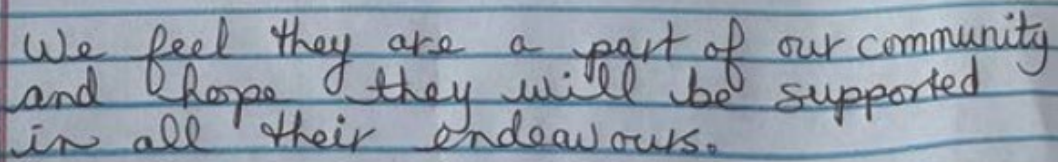 We feel they are a part of our community
and hope they will be supported
in all their endeavours.